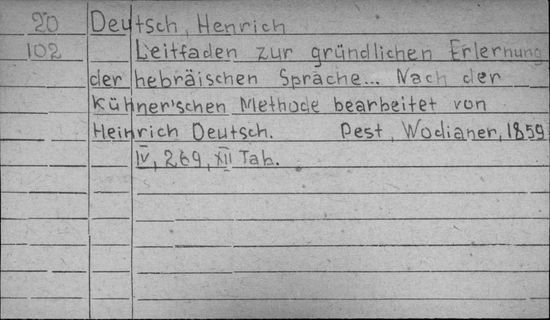 20 Deutsch, Henrich
102 Leitfaden zur gründlichen Erlernung
der hebräischen Sprache... Nach der
Kühner'schen Methode bearbeitet von
Heinrich Deutsch. Pest, Wodianer, 1859
IV, 269, XII Tab.